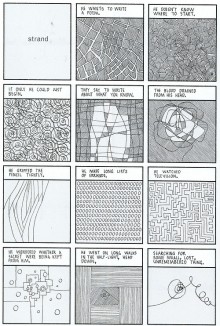 strand
HE WANTS TO WRITE
A POEM.
HE DOESN'T KNOW
WHERE TO START.
IF ONLY HE COULD JUST
BEGIN.
THEY SAY TO WRITE
ABOUT WHAT YOU KNOW.
THE BLOOD DRAINED
FROM HIS HEAD.
HE GRIPPED THE
PENCIL TIGHTLY.
HE MADE SOME LISTS
OF
HE WATCHED
TELEVISION.
HE WONDERED WHETHER A
SECRET WERE BEING KEPT
FROM HIM.
HE WENT ON LONG WALKS
IN THE HALF-LIGHT, NEAR
DAWN,
SEARCHING FOR
SOME SMALL, LOST,
UNREMEMBERED THING.